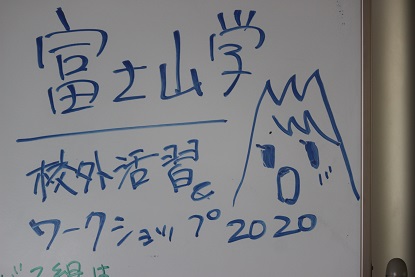 富士山学
校外活習&
ワークショップ2020